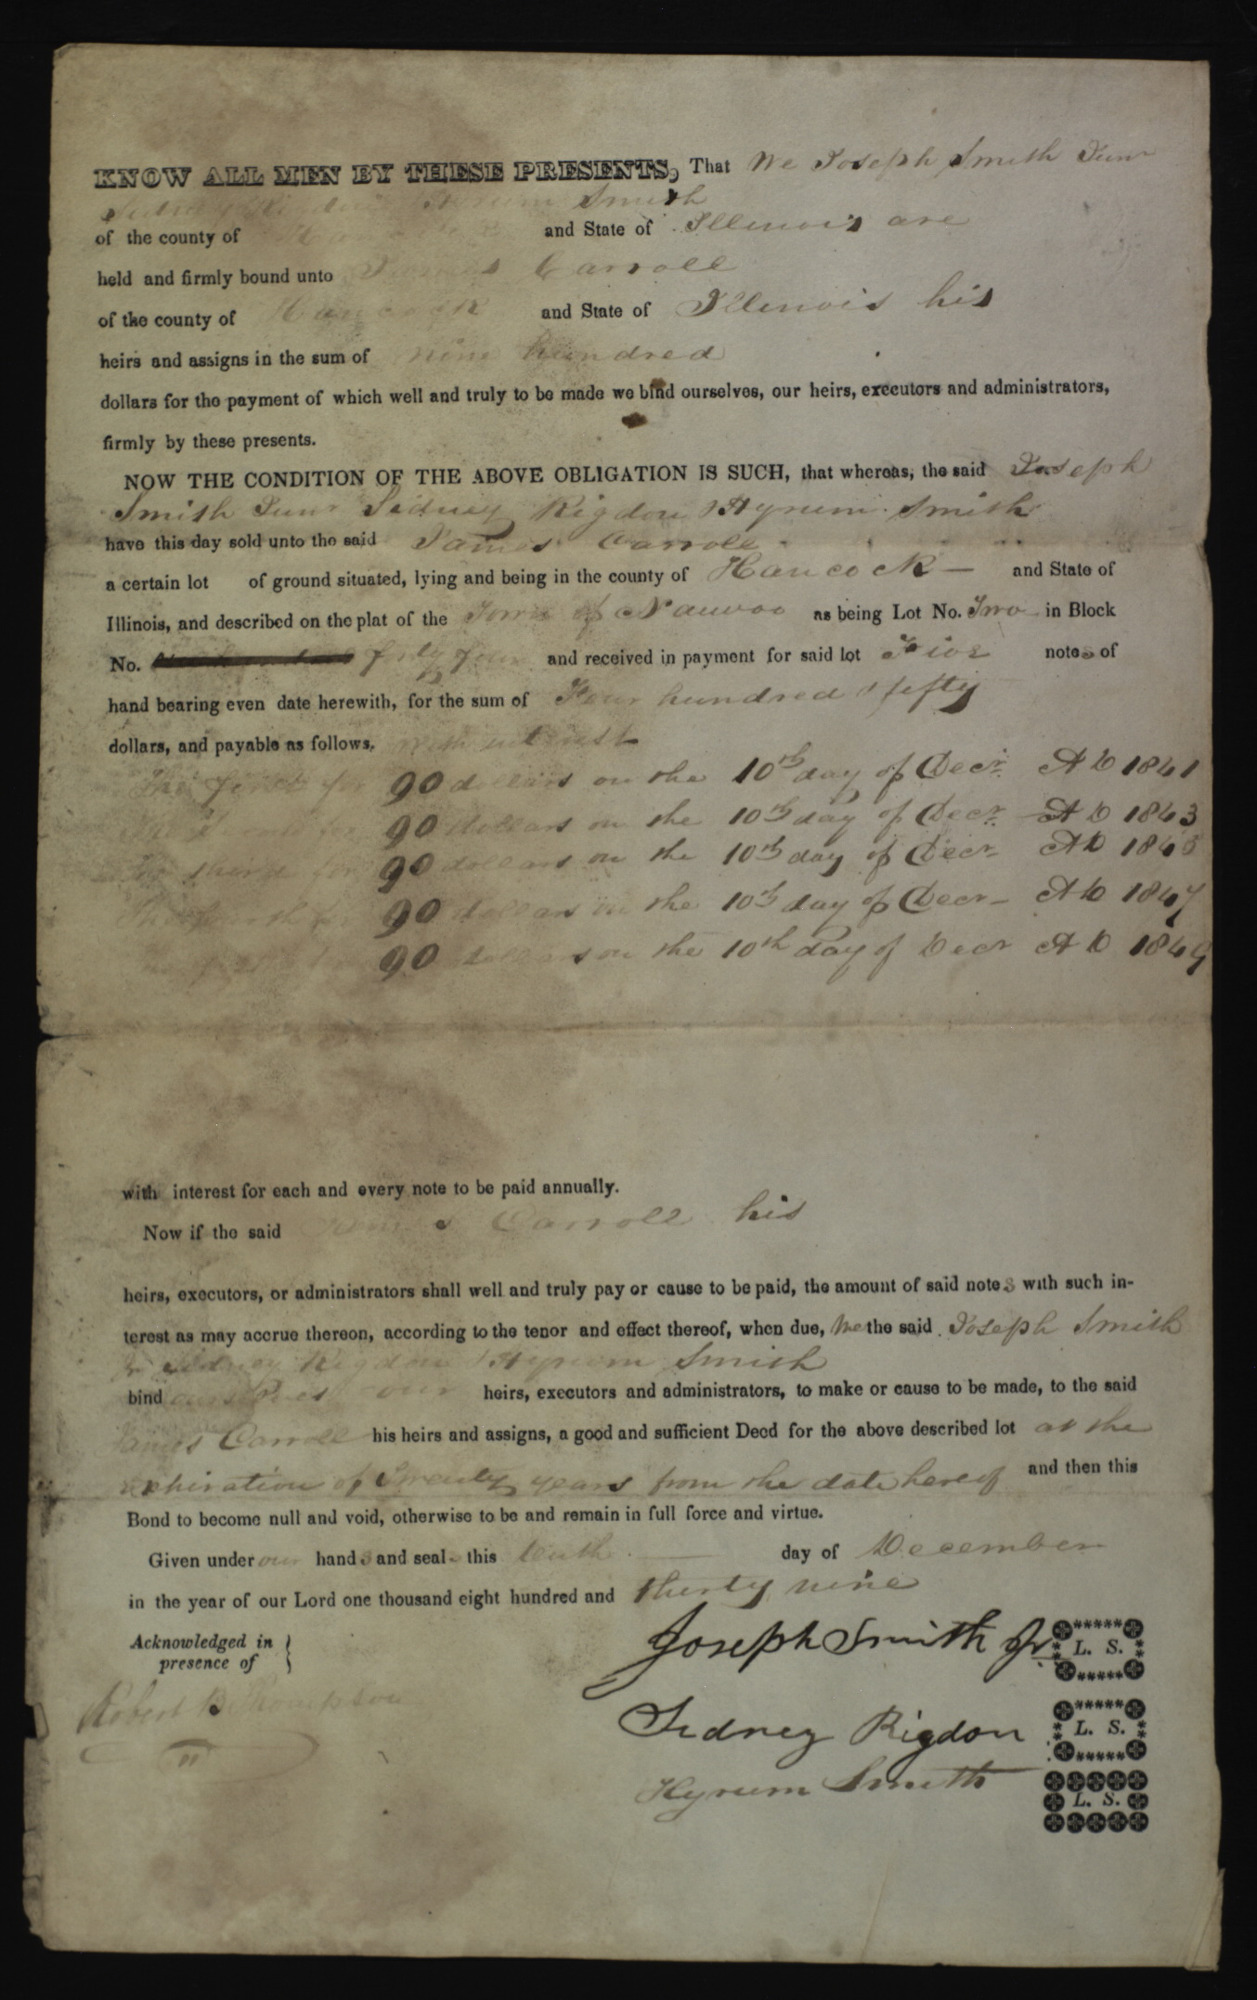 KNOW ALL MEN BY THESE PRESENTS, That We Joseph Smith Junr
Sidney Rigdon Hyrum Smith
of the county of Hancock and State of Illinois are
held and firmly bound unto James Carroll
of the county of Hancock and State of Illinois his
heirs and assigns in the sum of nine hundred
dollars for the payment of which well and truly to be made we bind ourselves, our heirs, executors and administrators,
firmly by these presents.
NOW THE CONDITION OF THE ABOVE OBLIGATION IS SUCH, that whereas, the said Joseph
Smith Junr Sidney Rigdon & Hyrum Smith
have this day sold unto the said James Carroll
a certain lot of ground situated, lying and being in the county of Hancock — and State of
Illinois, and described on the plat of the Town of Nauvoo as being Lot No. Two in Block
No. forty four and received in payment for said lot Five notes of
hand bearing even date herewith, for the sum of Four hundred & fifty
dollars, and payable as follows, with interest
The first for 90 dollars on the 10th day of Decr. AD 1841
for 90 dollars on the 10th day of Decr. AD 1843
The third for 90 dollars on the 10th day of Decr AD 1845
90 dollars on the 10th day of Decr— AD 1847
90 dollars on the 10th day of Decr AD 1849
with interest for each and every note to be paid annually.
Now if the said James Carroll his
heirs, executors, or administrators shall well and truly pay or cause to be paid, the amount of said notes with such in-
terest as may accrue thereon, according to the tenor and effect thereof, when due, We the said Joseph Smith
Jr Sidney Rigdon & Hyrum Smith
bind ourselves our heirs, executors and administrators, to make or cause to be made, to the said
James Carroll his heirs and assigns, a good and sufficient Deed for the above described lot at the
expiration of Twenty years from the date hereof and then this
Bond to become null and void, otherwise to be and remain in full force and virtue.
Given under our hands and seals this tenth — day of December
in the year of our Lord one thousand eight hundred and thirty nine
Acknowledged in }
presence of
Joseph Smith Jr. L. S.
Robert B. Thompson
Sidney Rigdon L. S.
Hyrum Smith L. S.